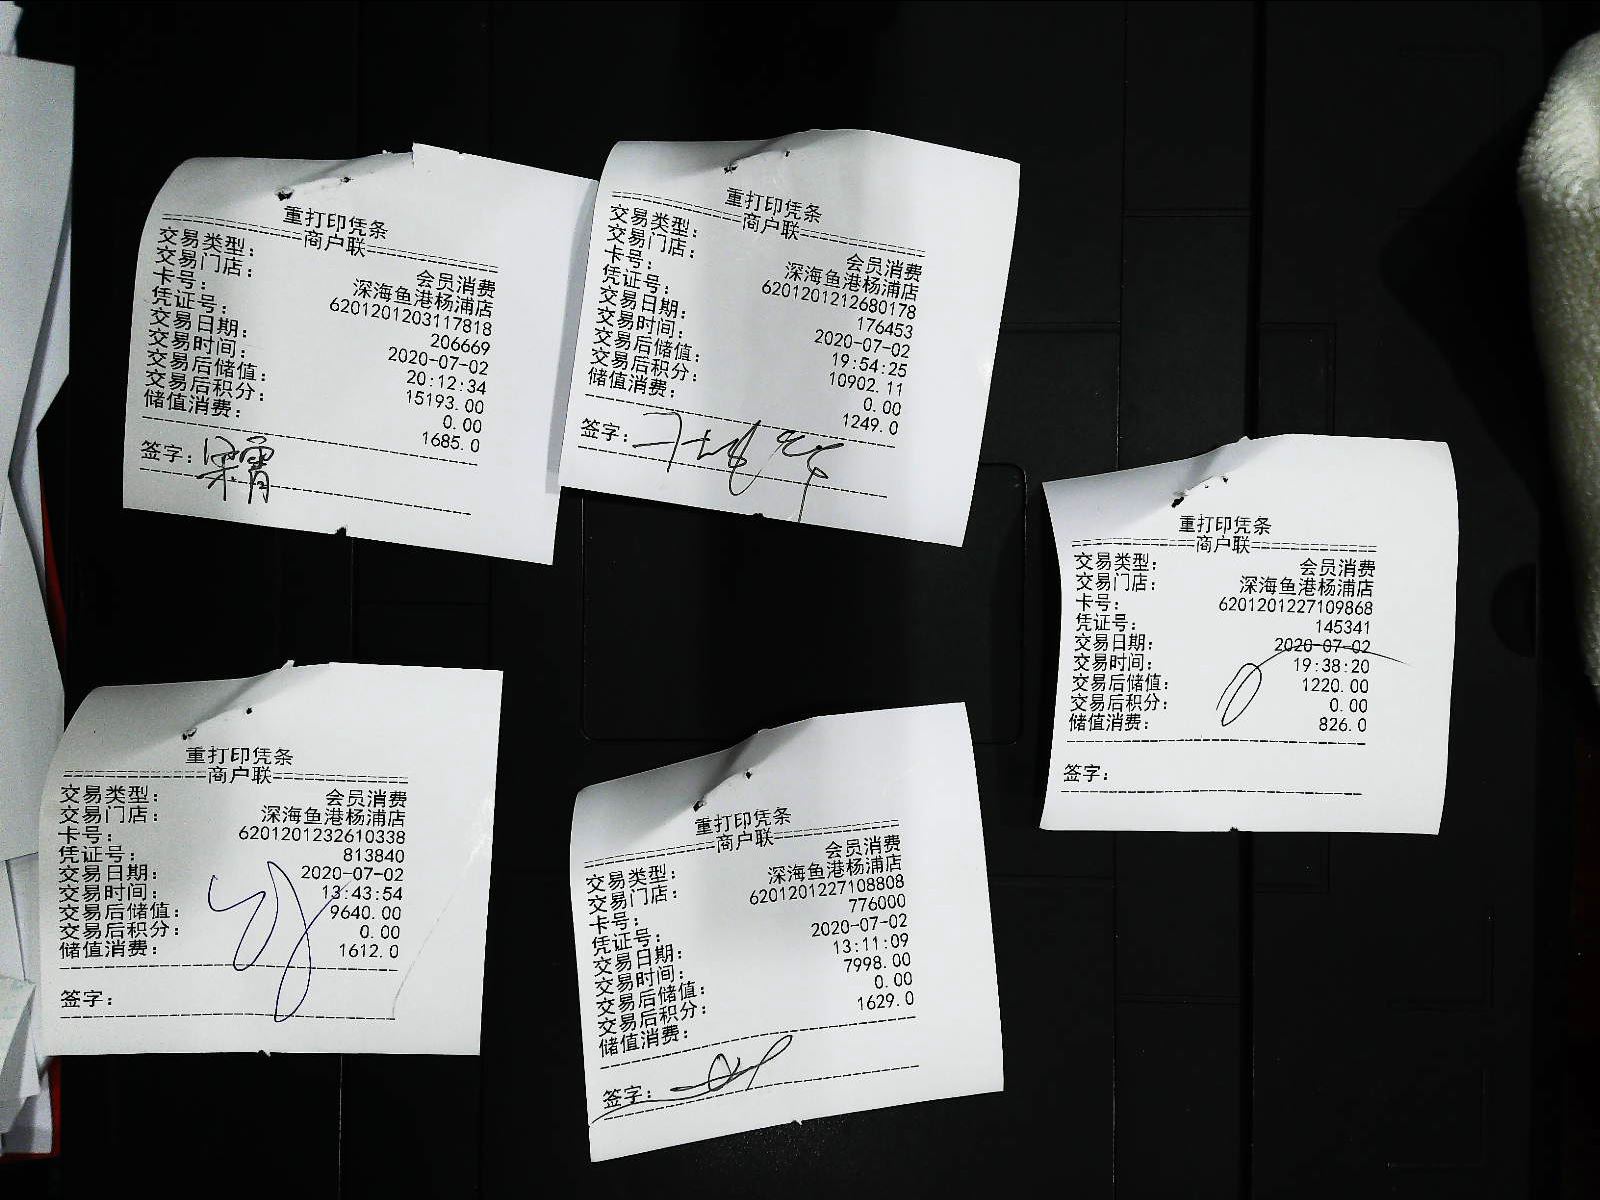 重打印凭条
商户联
交易类型： 会员消费
交易门店： 深海鱼港杨浦店
卡号： 6201201203117818
凭证号： 206669
交易日期： 2020-07-02
交易时间： 20:12:34
交易后储值： 15193.00
交易后积分： 0.00
储值消费： 1685.0
签字：梁霄
重打印凭条
商户联
交易类型： 会员消费
交易门店： 深海鱼港杨浦店
卡号： 6201201212680178
凭证号： 176453
交易日期： 2020-07-02
交易时间： 19:54:25
交易后储值： 10902.11
交易后积分： 0.00
储值消费： 1249.0
签字：
重打印凭条
商户联
交易类型： 会员消费
交易门店： 深海鱼港杨浦店
卡号： 6201201227109868
凭证号： 145341
交易日期： 2020-07-02
交易时间： 19:38:20
交易后储值： 1220.00
交易后积分： 0.00
储值消费： 826.0
签字：
重打印凭条
商户联
交易类型： 会员消费
交易门店： 深海鱼港杨浦店
卡号： 6201201232610338
凭证号： 813840
交易日期： 2020-07-02
交易时间： 13:43:54
交易后储值： 9640.00
交易后积分： 0.00
储值消费： 1612.0
签字：
重打印凭条
商户联
交易类型： 会员消费
交易门店： 深海鱼港杨浦店
卡号： 6201201227108808
凭证号： 776000
交易日期： 2020-07-02
交易时间： 13:11:09
交易后储值： 7998.00
交易后积分： 0.00
储值消费： 1629.0
签字：